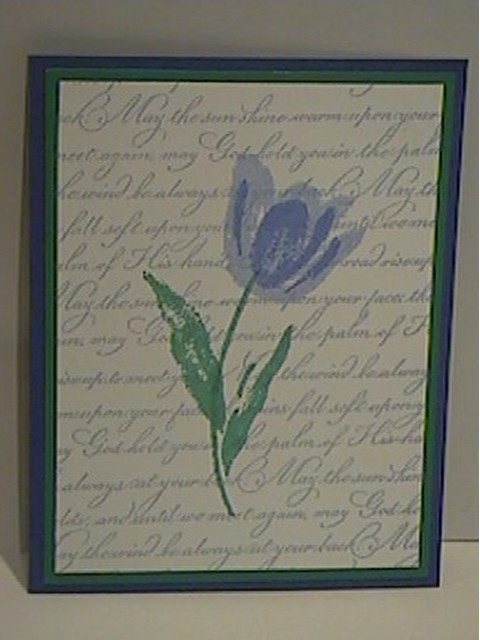 back. May the sun shine warm upon your
meet again, may God hold you in the palm
the wind be always at your back. May the
fall soft upon your until we me
alm of His hand road rise up
May the sun shine warm upon your face; the
in, may God hold you the palm of
rise up to meet y the wind be alway
m upon your fac ains fall soft upon y
y God hold you in the palm of His ha
always at your back. May the sun shin
lds; and until we meet again, may God
ay the wind be always at your back. Ma